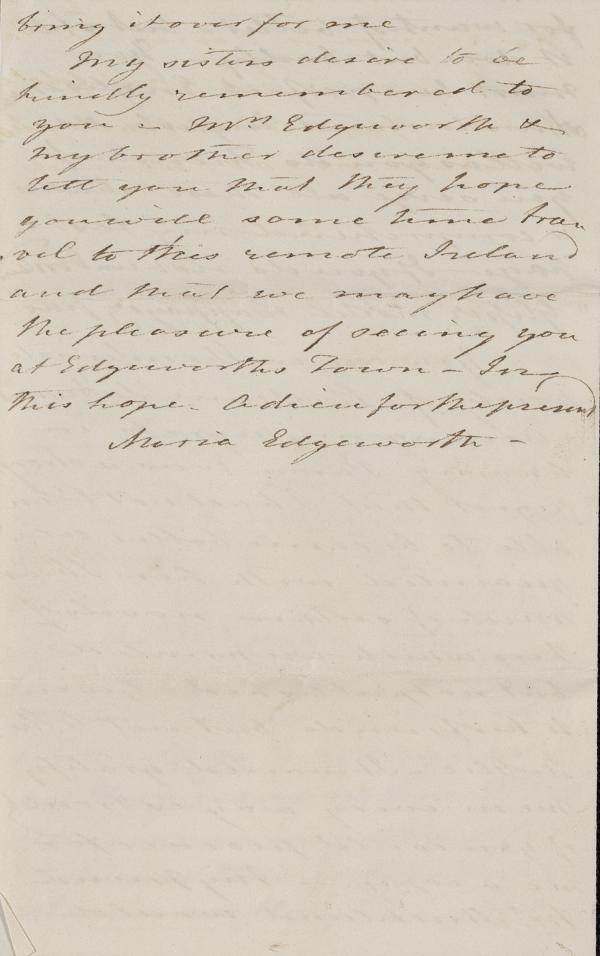 bring it over for me
My sisters desire to be
kindly remembered to
you – Mrs Edgeworth &
my brother desire me to
tell you that they hope
you will some time tra
vel to this remote Ireland
and that we may have
the pleasure of seeing you
at Edgeworths Town – In
this hope – Adieu for the present
Maria Edgeworth –